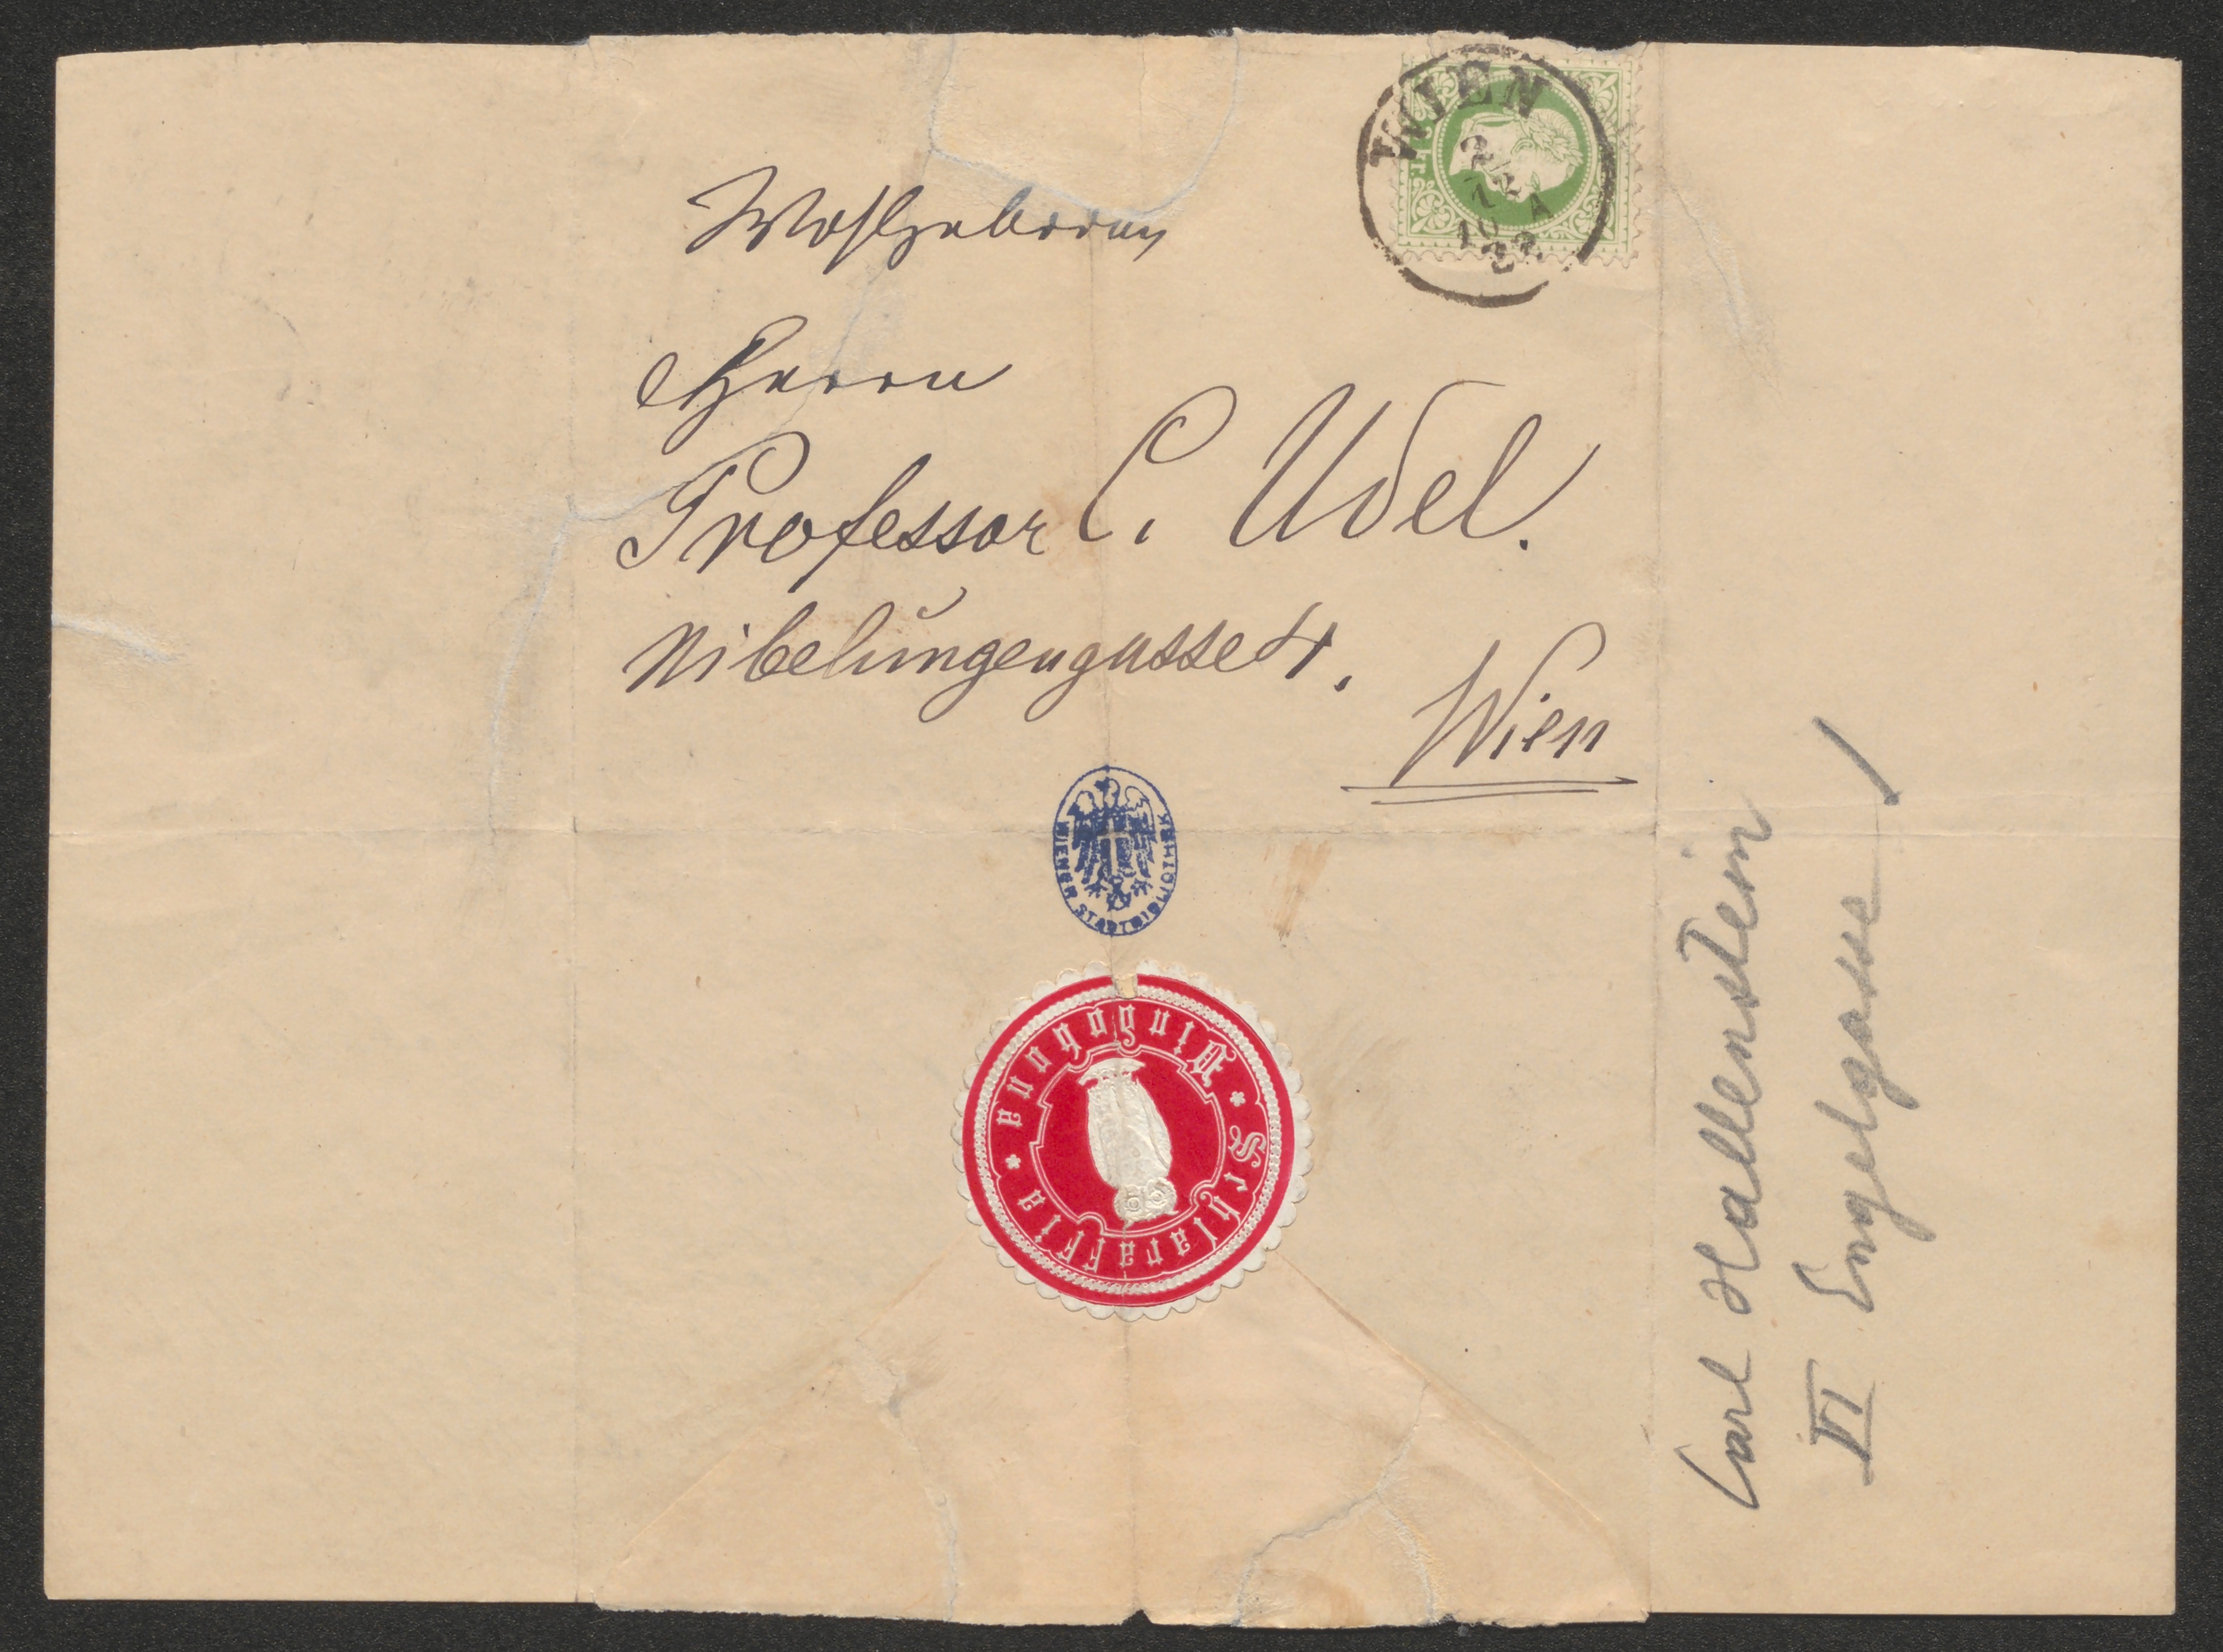 WIEN
2/12
10 A
Wohlgeboren
Herrn
Professor C. Udel.
Nibelungengasse 4.
Wien
WIENER STADTBIBLIOTHEK
Schlaraffia * Vindobona *
Carl Hallenstein
VI Engelgasse 1